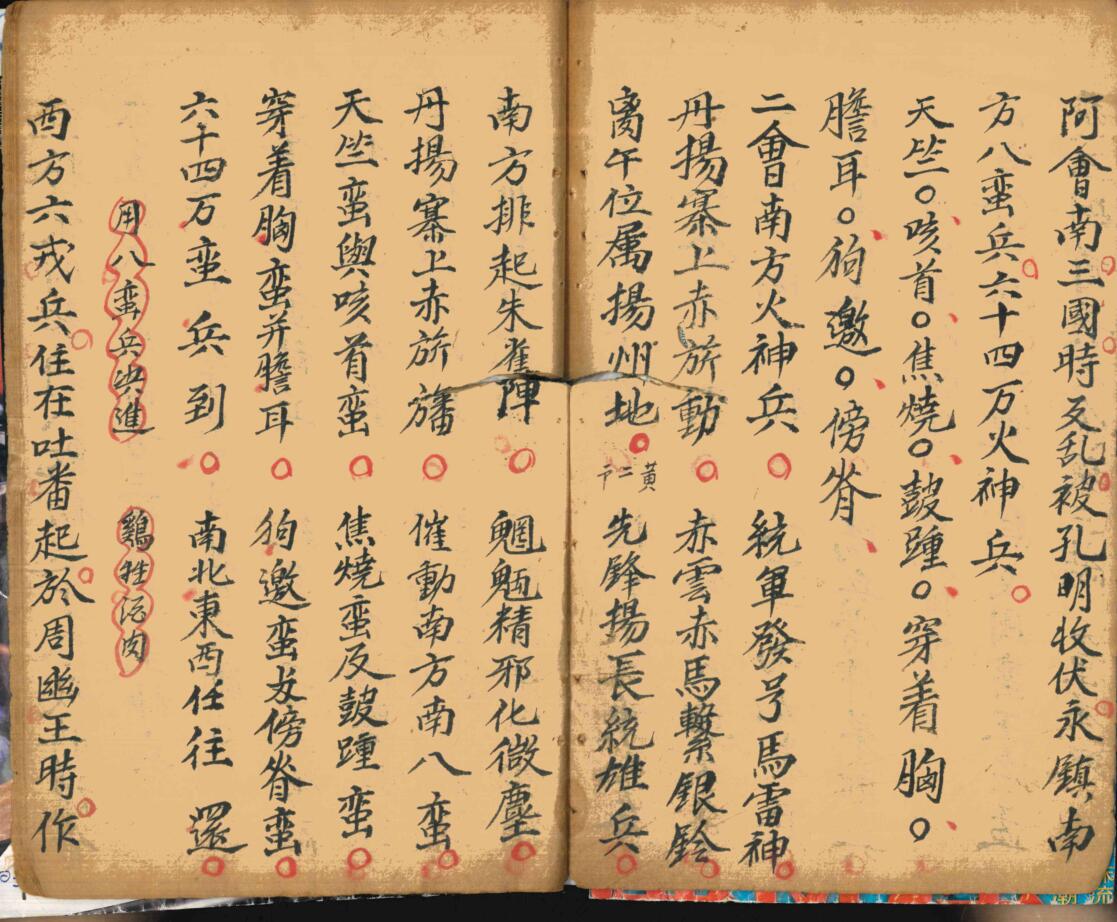 阿會南三國時反乱被孔明收伏永鎮南
方八蛮兵六十四万火神兵
天竺○咳首○焦燒○皷踵○穿着胸○
膽耳○狗邀○傍脊
二會南方火神兵 統軍發号馬雷神
丹揚寨上赤旂動 赤雲赤馬繋銀鈴
离午位属揚州地 黃二 先鋒揚長統雄兵
南方排起朱雀陣 魍魎精邪化微塵
丹揚寨上赤旂旛 催動南方南八蛮
天竺蛮與咳首蛮 焦燒蛮反皷踵蛮
穿着胸蛮并膽耳 狗邀蛮友傍脊蛮
六十四万蛮兵到 南北東西任往還
用八蛮兵洪進 鷄牲酒肉
西方六戎兵住在吐番起於周幽王時作